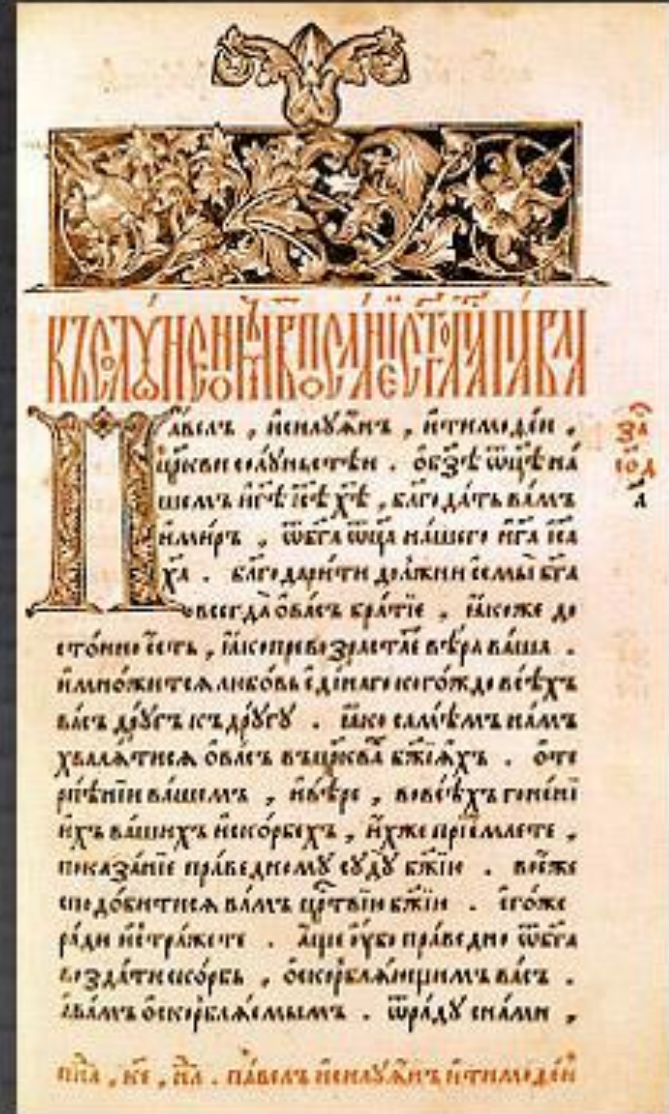 КЪСОЛꙊНЕНѠМЪ В҃ ПОСЛАНЇЕ СТ҃ГО АПⷭ҇ЛА ПАВЛА
Па́велъ , и҆силꙋа́нъ , и҆тимоѳе́и ,
цр҃кви солꙋ́ньстѣи . ѻ҆бз҃ѣ ѿц҃ѣ на́
шемъ и҆г҃ѣ і҆с҃ѣ х҃ѣ , блг҃ода́ть ва́мъ
и҆ми́ръ , ѿбг҃а ѿц҃а на́шего и҆г҃а і҆с҃а
х҃а . благодари́ти до́лжни есмы̀ бг҃а
всегда̀ ѻ҆ва́съ бра́тїе , ꙗ҆́коже до
сто́ино є҆́сть , ꙗ҆́ко превозраста́е вѣ́ра ва́ша .
и҆мно́жится любо́вь є҆ди́наго кого́ждо всѣ́хъ
ва́съ дрꙋ́гъ къдрꙋ́гꙋ . ꙗ҆́ко самѣ́мъ на́мъ
хвали́тися ѻ҆ва́съ въцр҃ква бж҃їихъ . ѻ҆те
рпѣ́нїи ва́шемъ , и҆вѣ́ре , вовсѣ́хъ гоне́нї
и҆хъ ва́шихъ и҆ско́рбехъ , и҆́хже прїе́млете ,
показа́нїе пра́ведномꙋ сꙋдꙋ̀ бж҃їю . во́еже
сподо́битися ва́мъ црⷭ҇твїю бж҃їю . є҆го́же
ра́ди и҆стра́жете . а҆́ще ᲂу҆́бо пра́ведно ѿбг҃а
возда́ти ско́рбь , ѻ҆скорблѧ́ющимъ ва́съ .
а҆ва́мъ ѻ҆скорблѧ́емымъ . ѿра́дꙋ сна́ми ,
па́велъ и҆силꙋа́нъ и҆тимоѳе́и